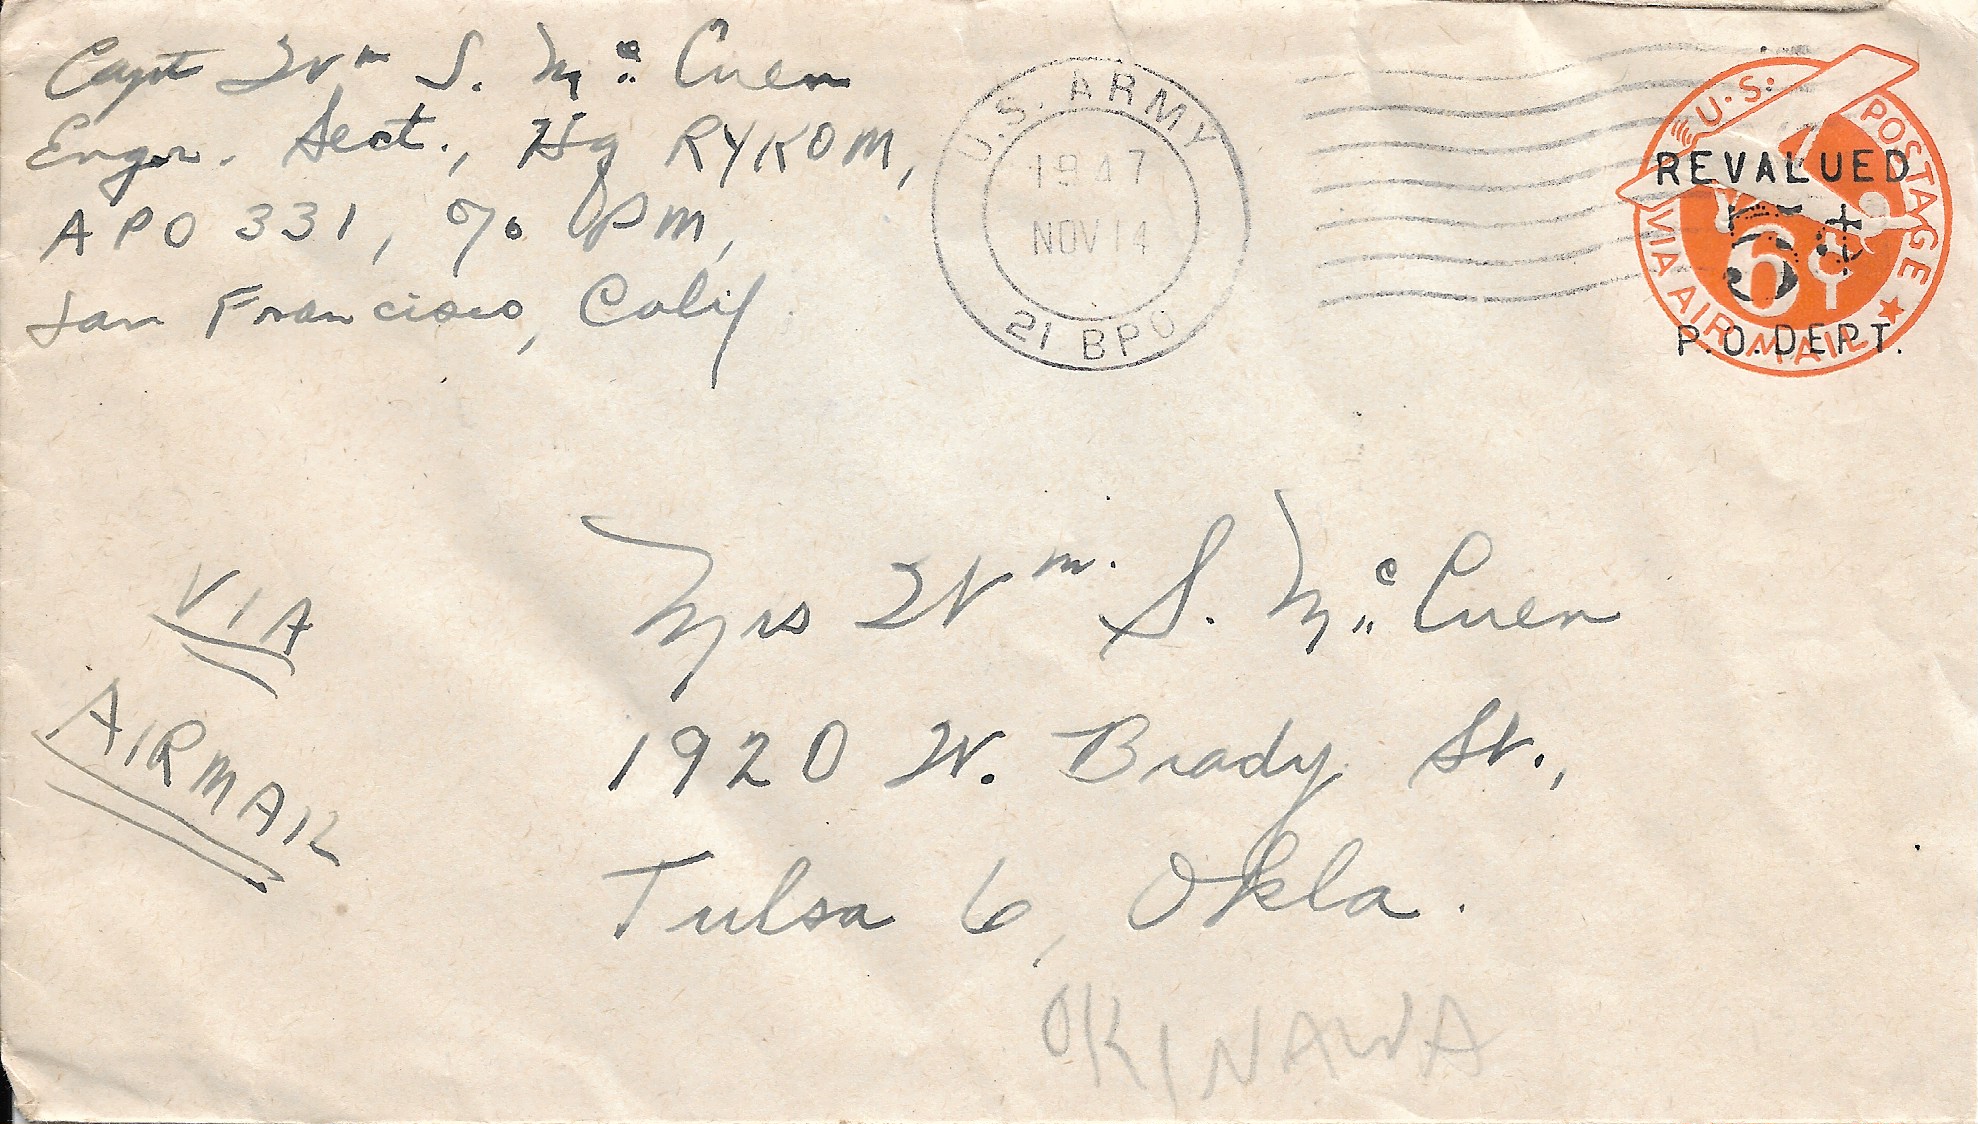 Capt Wm S. Mc Cuen
Engr. Sect., Hq RYKOM,
APO 331, c/o PM,
San Francisco, Calif.
U.S. ARMY
1947
NOV 14
21 BPO
U.S. POSTAGE
REVALUED
5¢
6¢
P.O. DEPT.
VIA AIR MAIL
VIA
AIRMAIL
Mrs Wm. S. Mc Cuen
1920 W. Brady St.,
Tulsa 6, Okla.
OKINAWA